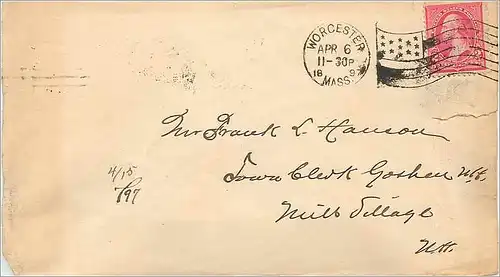 WORCESTER
APR 6
11-30P
18 97
MASS.
2
Mr Frank L. Hanson
Town Clerk Goshen N.H.
Mill Village
N.H.
4/15
/97